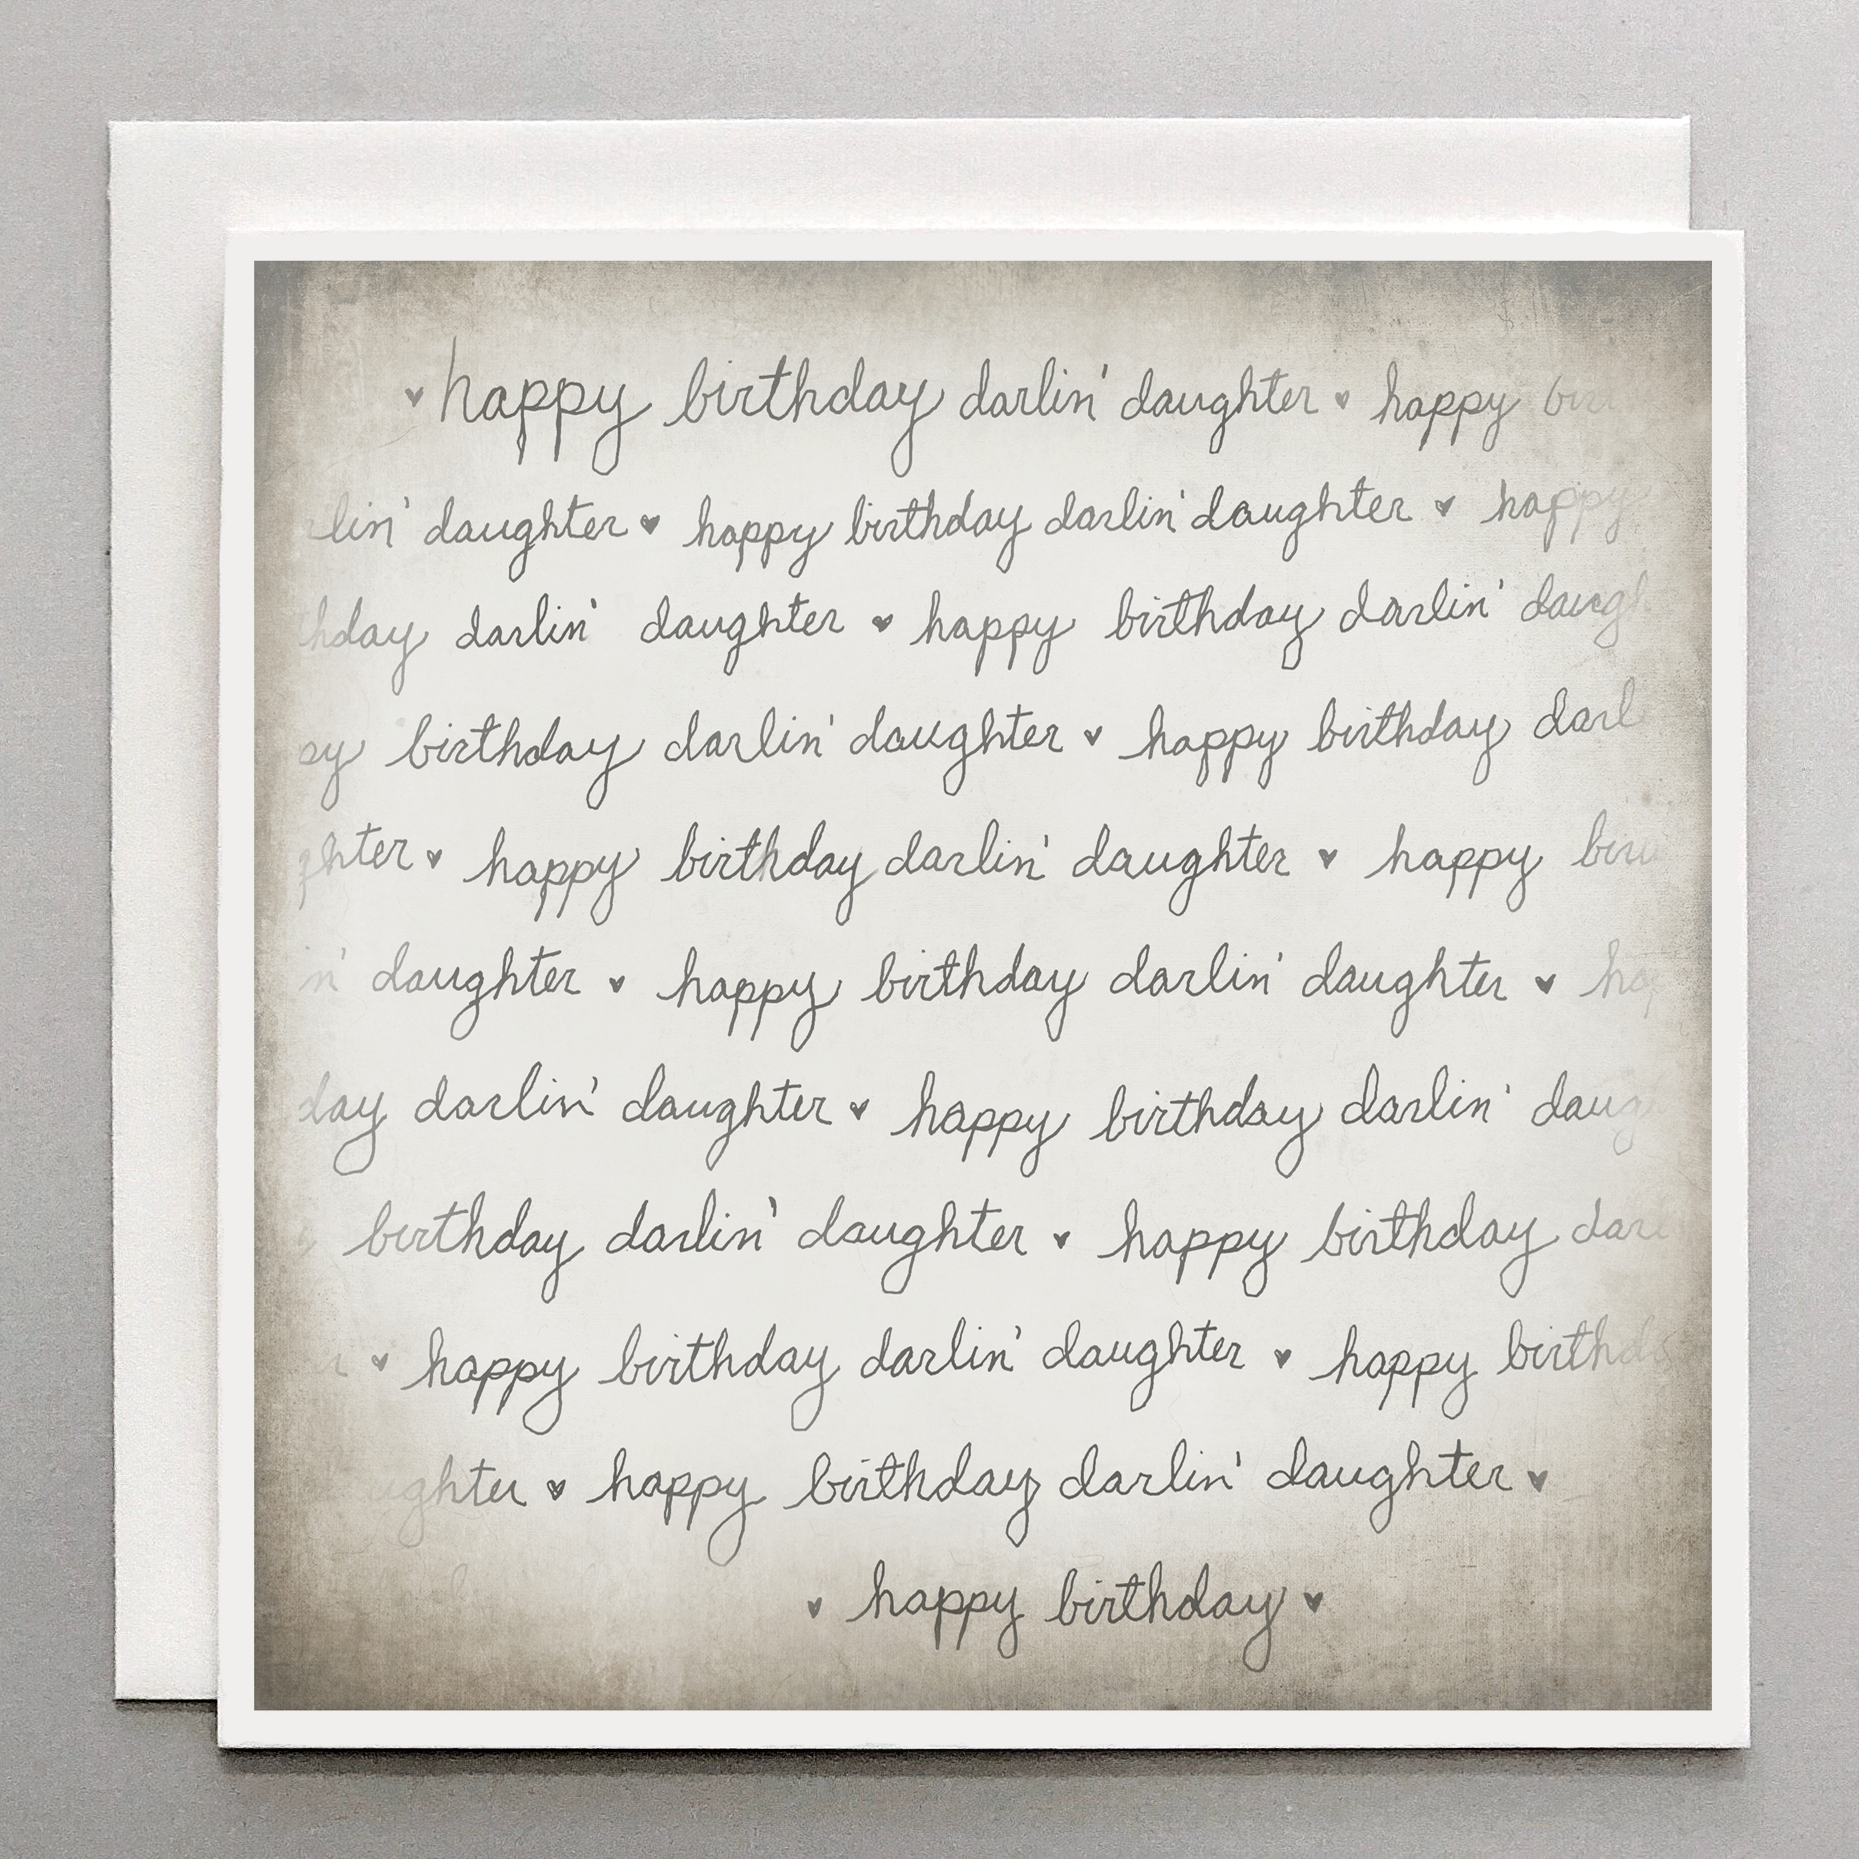 ♥ happy birthday darlin' daughter ♥ happy bir
lin' daughter ♥ happy birthday darlin' daughter ♥ happy
hday darlin' daughter ♥ happy birthday darlin' daugh
py birthday darlin' daughter ♥ happy birthday darl
ghter ♥ happy birthday darlin' daughter ♥ happy bir
n' daughter ♥ happy birthday darlin' daughter ♥ hap
day darlin' daughter ♥ happy birthday darlin' daug
birthday darlin' daughter ♥ happy birthday darl
r ♥ happy birthday darlin' daughter ♥ happy birthda
ughter ♥ happy birthday darlin' daughter ♥
♥ happy birthday ♥